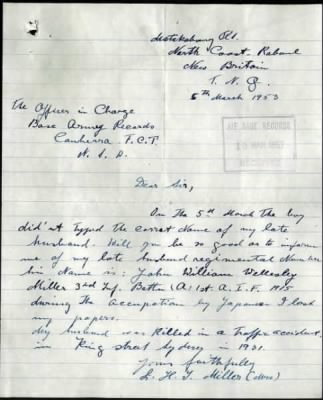 Matakabang Pl.
North Coast Rabaul
New Britain
T. N. G.
5th March 1953
AIF BASE RECORDS
10 MAR 1953
The Officer in Charge
Base Army Records
Canberra F.C.T.
Dear Sir,
On the 5th March the boy
did'nt typed the corret Name of my late
husband. Will you be so good as to inform
me of my late husband regimental Number
his Name is: John William Wellesley
Miller 3rd Inf. Battn (A) 1st A.I.F. 1915
during the Occupation by Japanese I lost
my papers.
My husband was Killed in a Traffic accident
in King street Sydney in 1931.
Yours faithfully
L. H. J. Miller (Mrs)